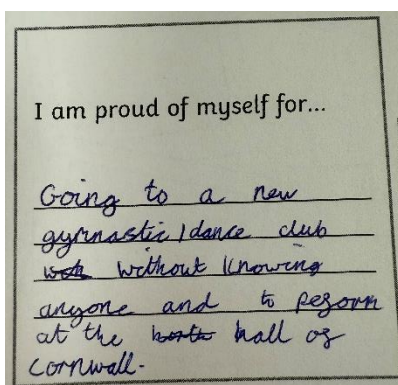 I am proud of myself for...
Going to a new
gymnastic/dance club
without knowing
anyone and to pegorm
at the hall of
Cornwall.